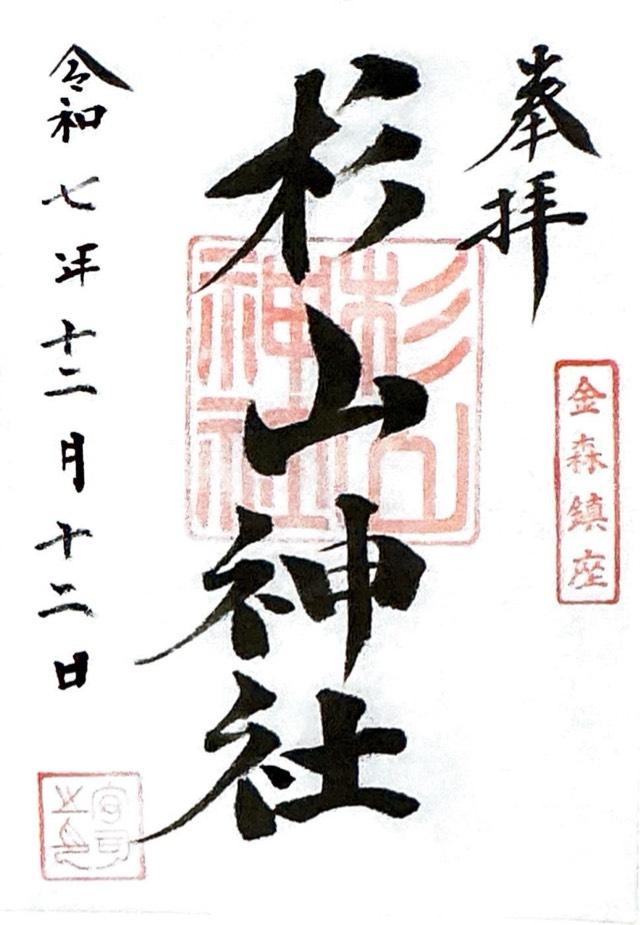 奉拝
金森鎮座
杉山神社
杉山神社
令和七年十二月十二日
宮司之印